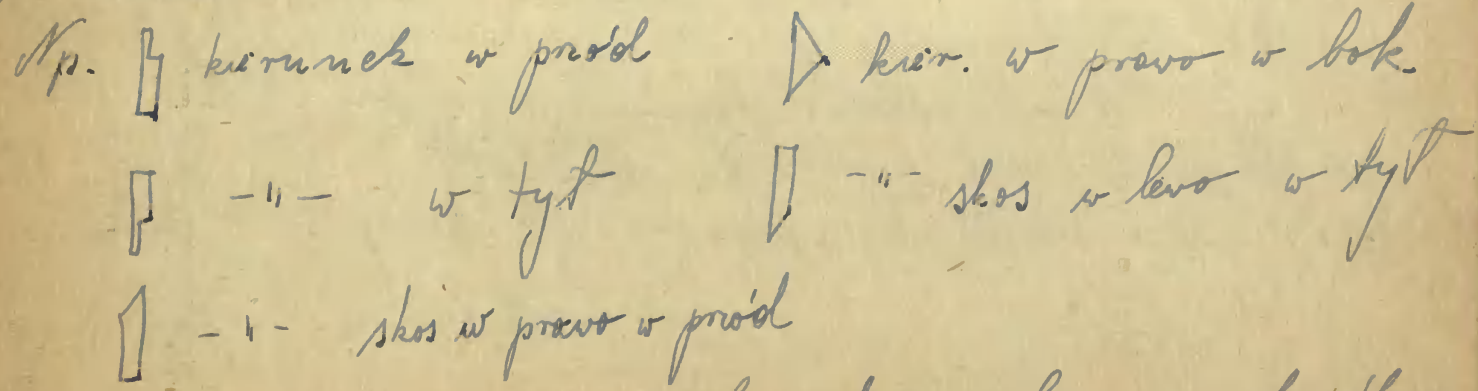 Np. kierunek w przód kier. w prawo w bok.
-"- w tył -"- skos w lewo w tył
-"- skos w prawo w przód